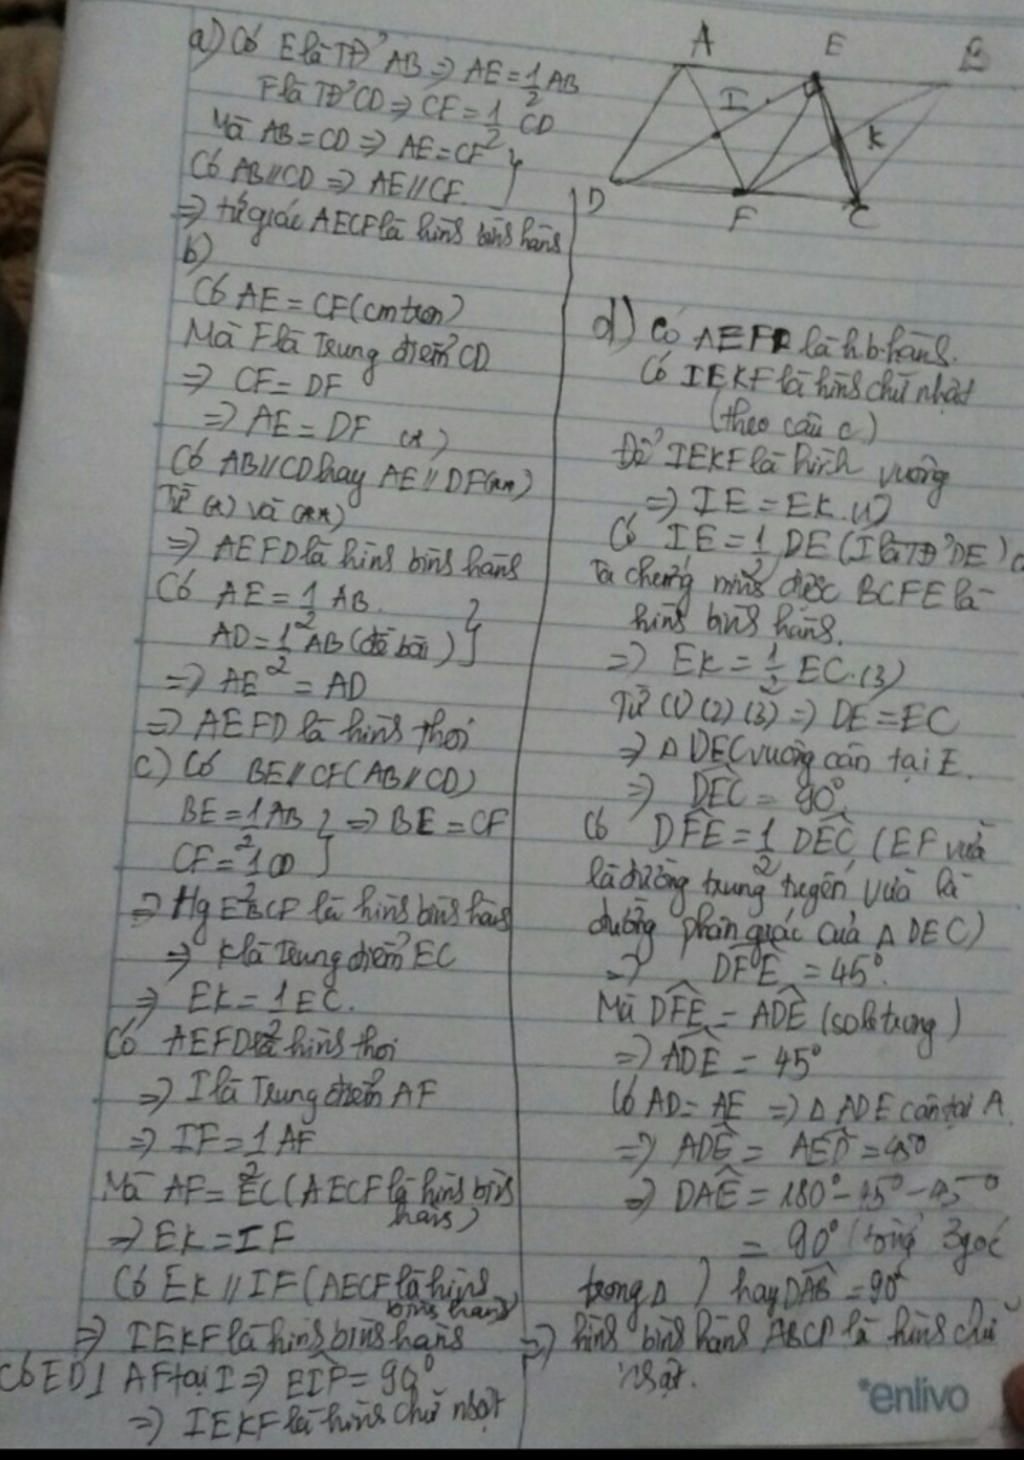 a) Có E là TĐ' AB ⇒ AE = 1/2 AB
F là TĐ' CD ⇒ CF = 1/2 CD
Mà AB = CD ⇒ AE = CF
Có AB // CD ⇒ AE // CF }
⇒ tứ giác AECF là hình bình hành
b)
Có AE = CF (cm trên)
Mà F là Trung điểm CD
⇒ CF = DF
⇒ AE = DF (*)
Có AB // CD hay AE // DF (**)
Từ (*) và (**)
⇒ AEFD là hình bình hành
Có AE = 1/2 AB
AD = 1/2 AB (đề bài) }
⇒ AE = AD
⇒ AEFD là hình thoi
c) Có BE // CF (AB // CD)
BE = 1/2 AB } ⇒ BE = CF
CF = 1/2 CD
⇒ Hg EBCF là hình bình hành
⇒ K là Trung điểm EC
⇒ EK = 1/2 EC.
Có AEFD là hình thoi
⇒ I là Trung điểm AF
⇒ IF = 1/2 AF
Mà AF = EC (AECF là hình bình
hành)
⇒ EK = IF
Có EK // IF (AECF là hình
bình hành)
⇒ IEKF là hình bình hành
Có ED ⊥ AF tại I ⇒ EIF = 90°
⇒ IEKF là hình chữ nhật
A E B
I
K
D F C
d) Có AEFD là h.b.hành.
Có IEKF là hình chữ nhật
(theo câu c)
Để IEKF là hình vuông
⇒ IE = EK (1)
Có IE = 1/2 DE (I là TĐ' DE)
Ta chứng minh được BCFE là
hình bình hành.
⇒ EK = 1/2 EC. (3)
Từ (1) (2) (3) ⇒ DE = EC
⇒ Δ DEC vuông cân tại E.
⇒ DEC = 90°
Có DFE = 1/2 DEC (EF vừa
là đường trung tuyến, vừa là
đường phân giác của Δ DEC)
⇒ DFE = 45°.
Mà DFE = ADE (so le trong)
⇒ ADE = 45°
Có AD = AE ⇒ Δ ADE cân tại A
⇒ ADE = AED = 45°
⇒ DAE = 180° - 45° - 45°
= 90° (tổng 3 góc
trong Δ) hay DAB = 90°
⇒ hình bình hành ABCD là hình chữ
nhật.
enlivo